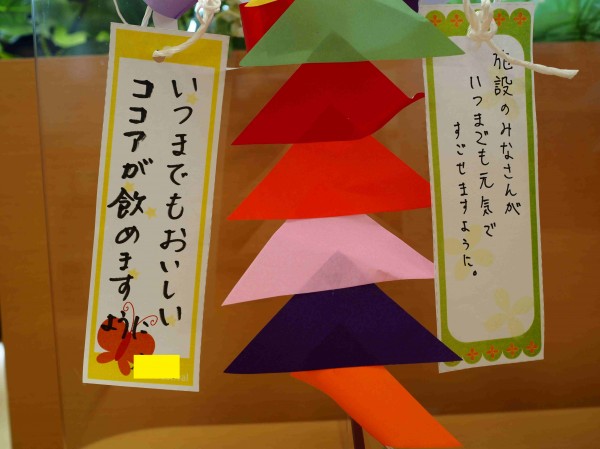 いつまでもおいしい
ココアが飲めます
ように
施設のみなさんが
いつまでも元気で
すごせますように。